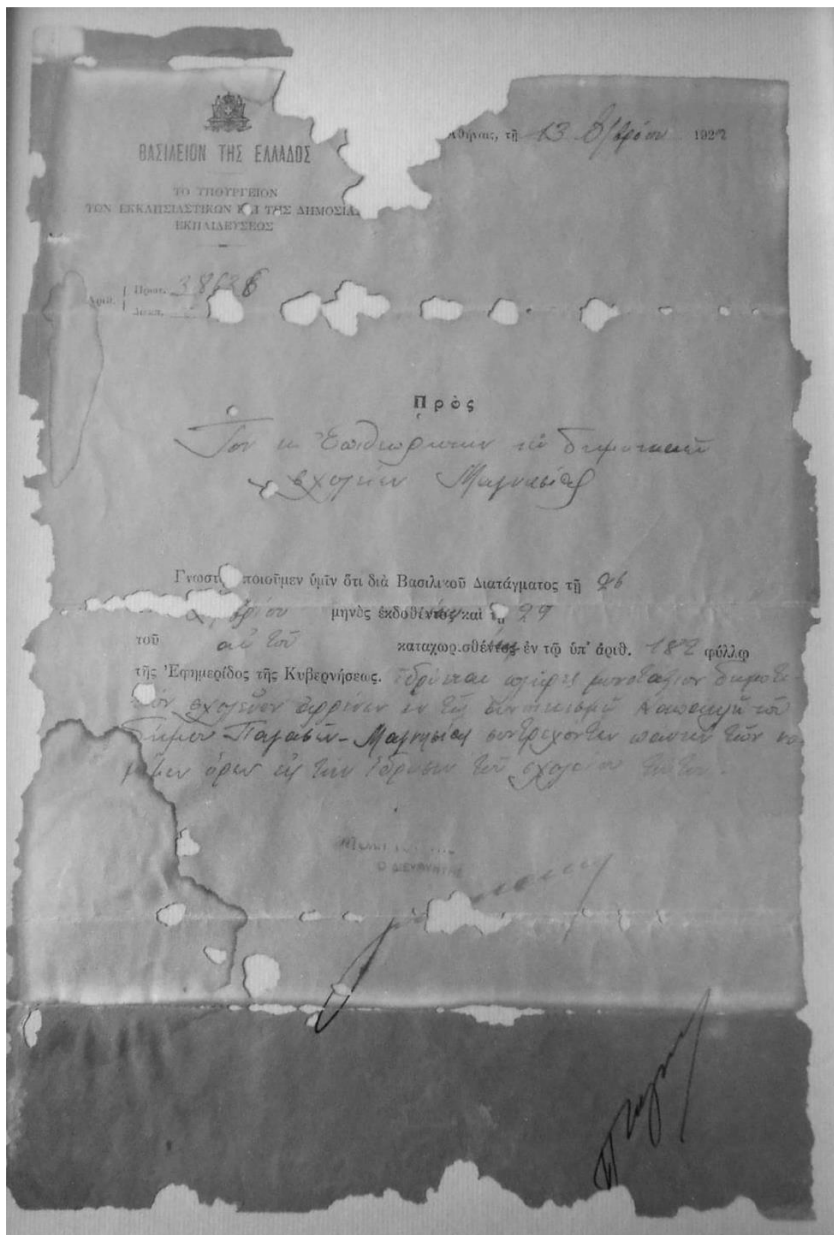 ΒΑΣΙΛΕΙΟΝ ΤΗΣ ΕΛΛΑΔΟΣ
ΤΟ ΥΠΟΥΡΓΕΙΟΝ
ΤΩΝ ΕΚΚΛΗΣΙΑΣΤΙΚΩΝ ΚΑΙ ΤΗΣ ΔΗΜΟΣΙΑΣ
ΕΚΠΑΙΔΕΥΣΕΩΣ
Ἀθήνας, τῇ 13 1922
Ἀριθ. Πρωτ.
Διεκπ.
Πρὸς
Τον κ. Ἐπιθεωρητην τῶν δημοτικῶν
σχολείων Μαγνησίας
Γνωστοποιοῦμεν ὑμῖν ὅτι διὰ Βασιλικοῦ Διατάγματος τῇ 26
μηνὸς ἐκδοθέντος καὶ τῇ 29
τοῦ αὐτοῦ καταχωρισθέντος ἐν τῷ ὑπ' ἀριθ. 182 φύλλῳ
τῆς Ἐφημερίδος τῆς Κυβερνήσεως. ἱδρύεται πλῆρες μονοτάξιον
σχολεῖον ἀρρένων ἐν τῷ συνοικισμῷ τοῦ
Δήμου Παγασῶν-Μαγνησίας συντρεχόντων πάντων τῶν
ὅρων εἰς τὴν ἵδρυσιν τοῦ σχολείου τούτου.
Ο ΔΙΕΥΘΥΝΤΗΣ